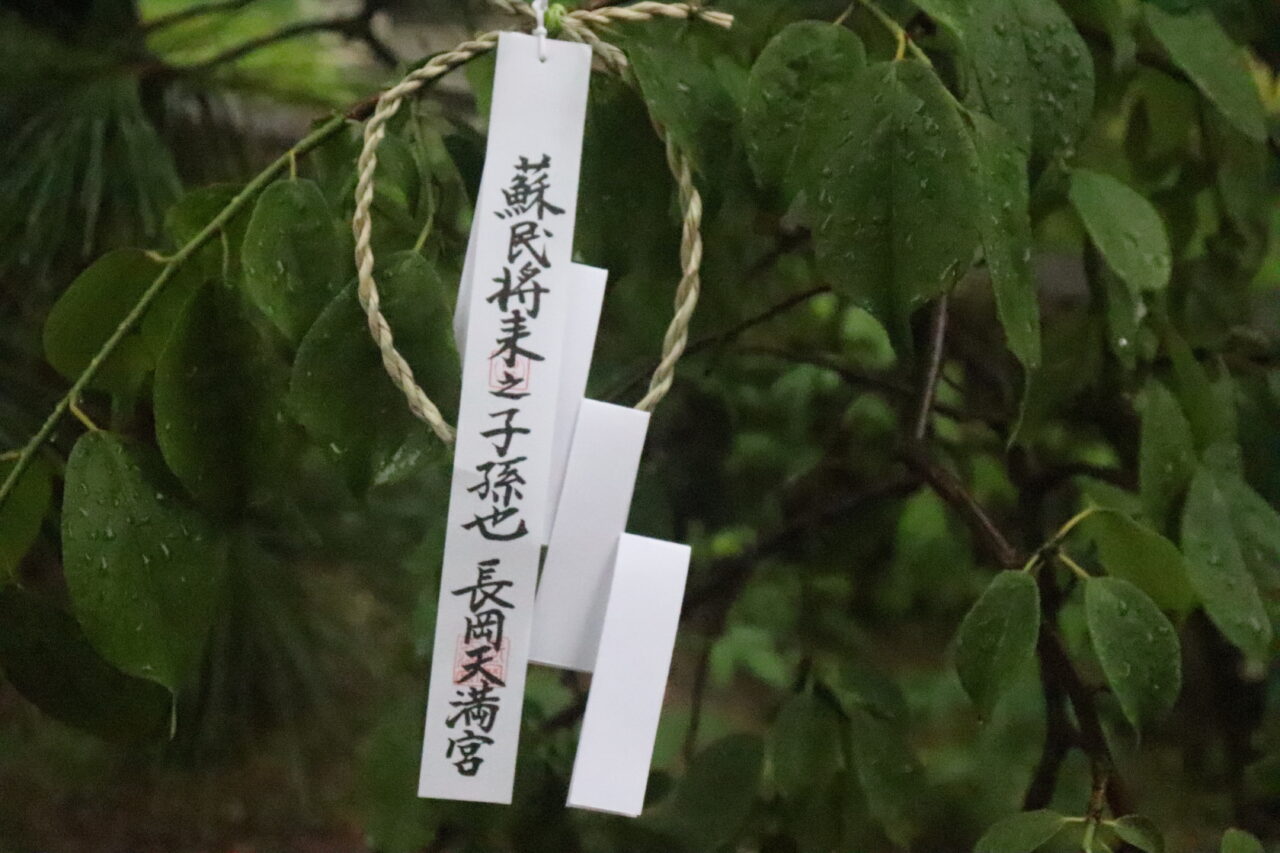 蘇民将来之子孫也 長岡天満宮